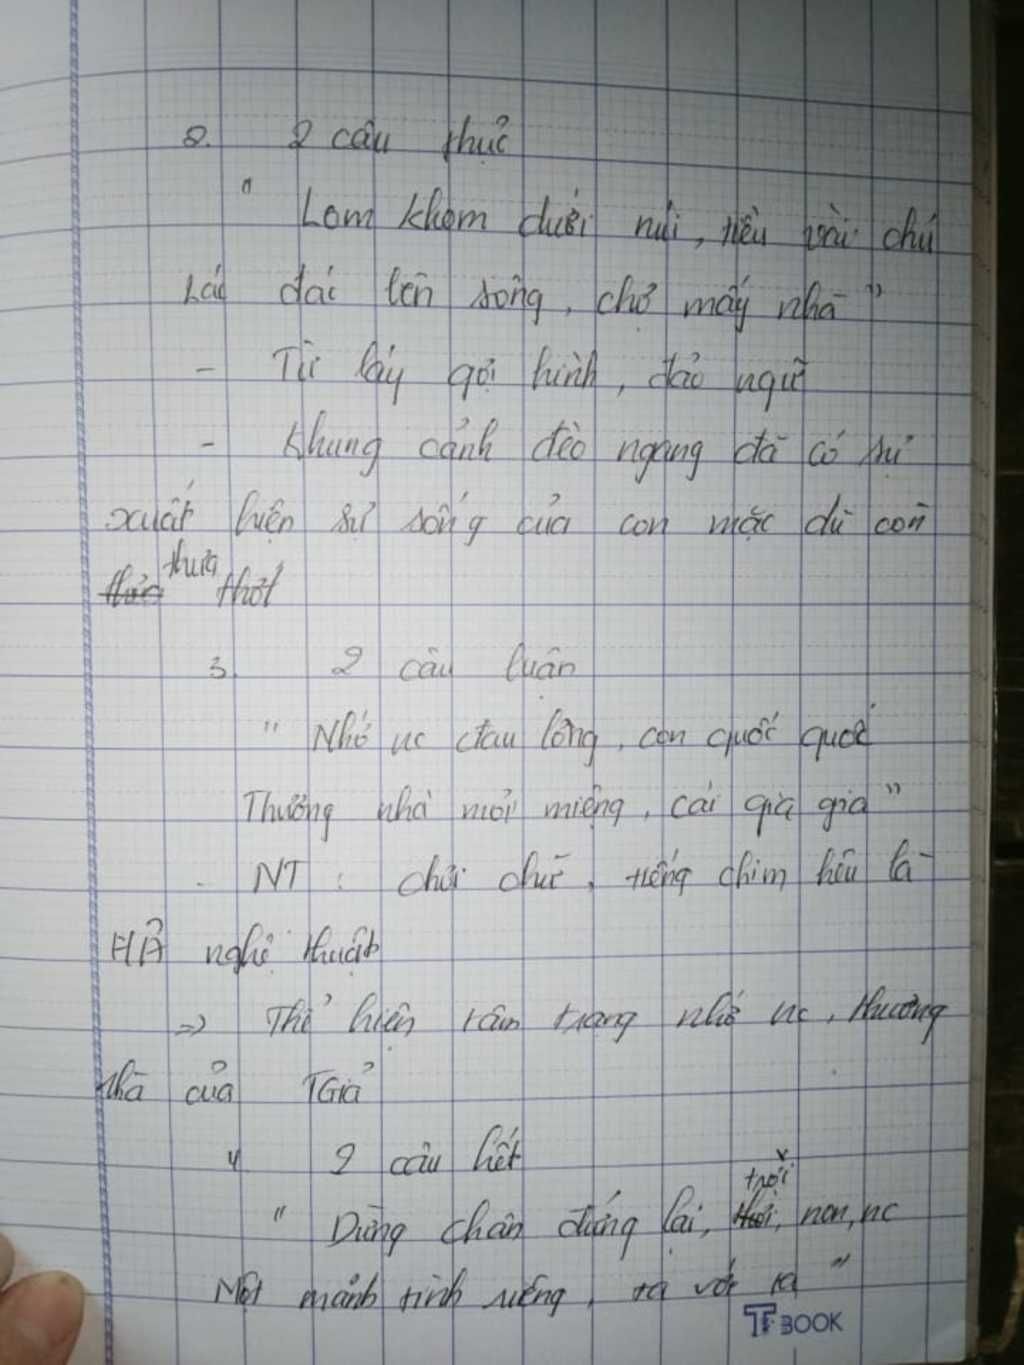 2. 2 câu thực
" Lom khom dưới núi, tiều vài chú
Lác đác lên sông, chợ mấy nhà "
- Từ láy gợi hình, đảo ngữ
- Khung cảnh đèo ngang đã có sự
xuất hiện sự sống của con mặc dù còn
thưa thớt
3. 2 câu luận
" Nhớ nc đau lòng, con quốc quốc
Thương nhà mỏi miệng, cái gia gia "
- NT : chơi chữ, tiếng chim kêu là
HẢ nghệ thuật
=> Thể hiện tâm trạng nhớ nc, thương
nhà của TGiả
4 2 câu kết
" Dừng chân đứng lại, trời, non, nc
Một mảnh tình riêng, ta với ta "
TBOOK